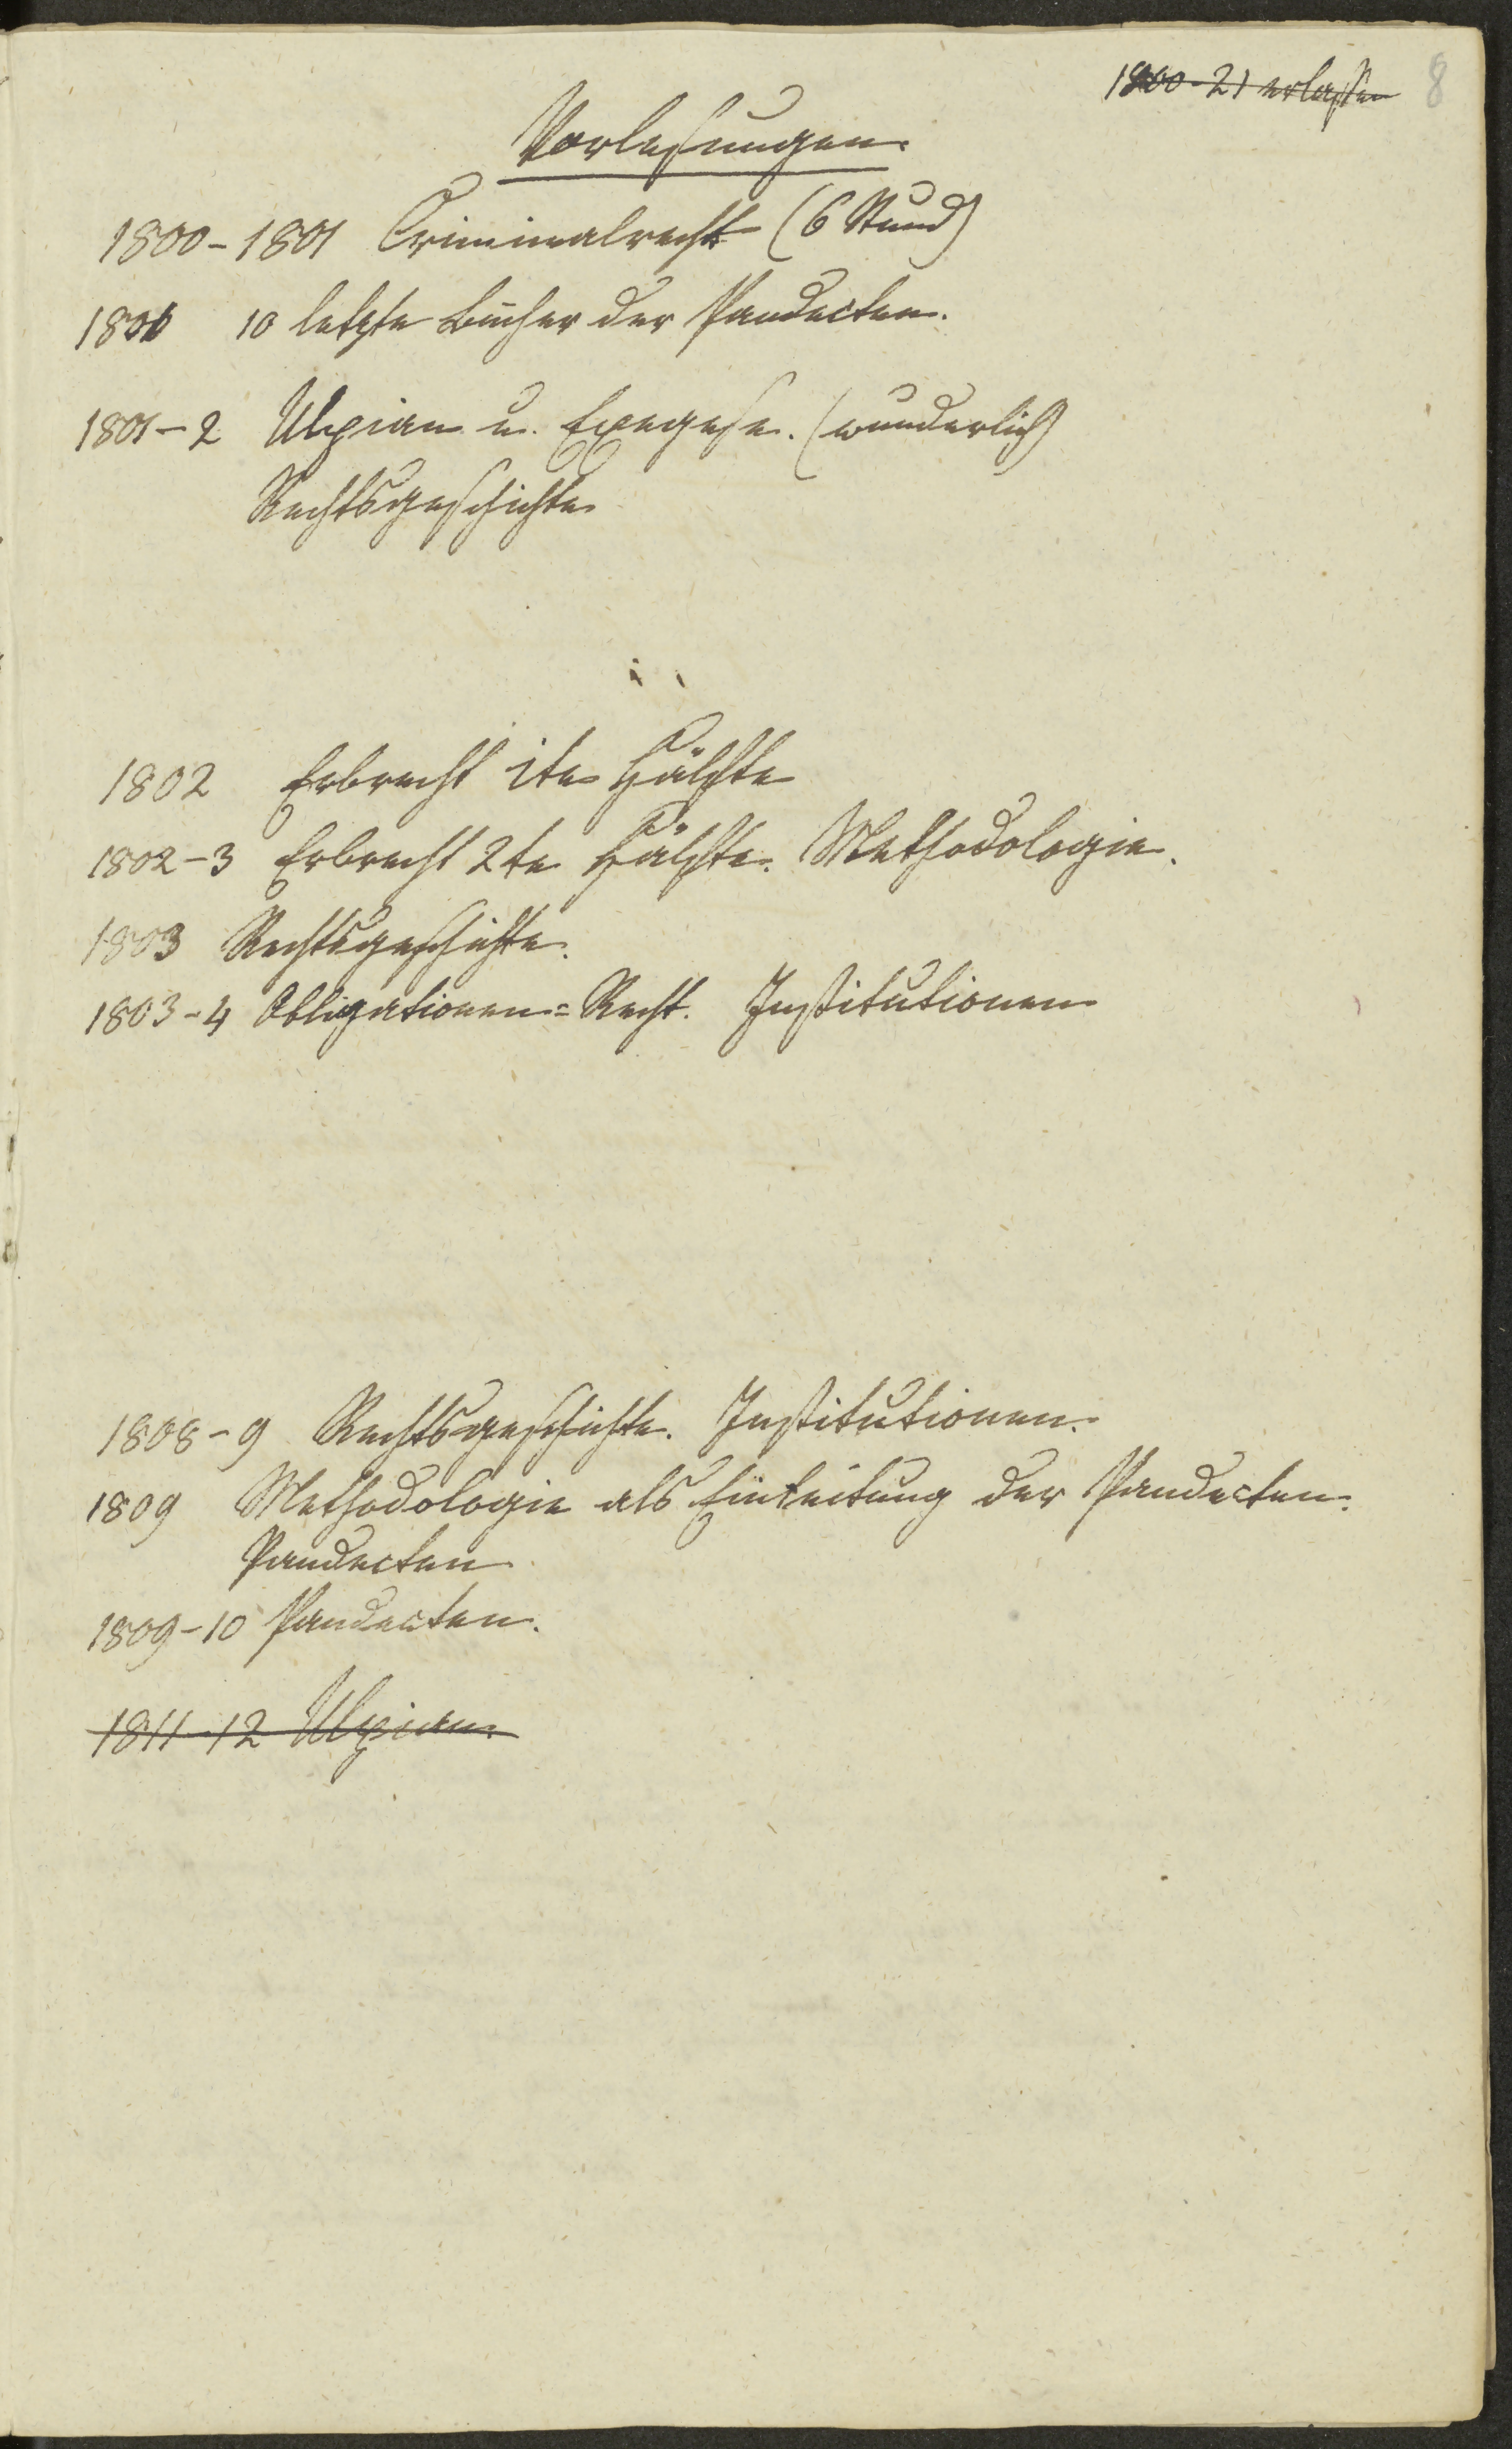 1800-21 erlassen 8
Vorlesungen.
1800-1801 Criminalrecht (6 Stund)
1801 10 letzte Bücher der Pandecten.
1801-2 Ulpian u. Exegese. (wunderlich)
Rechtsgeschichte
1802 Erbrecht 1te Hälfte
1802-3 Erbrecht 2te Hälfte. Methodologie.
1803 Rechtsgeschichte.
1803-4 Obligationen=Recht. Institutionen
1808-9 Rechtsgeschichte. Institutionen.
1809 Methodologie als Einleitung der Pandecten.
Pandecten
1809-10 Pandecten.
1811-12 Ulpian.